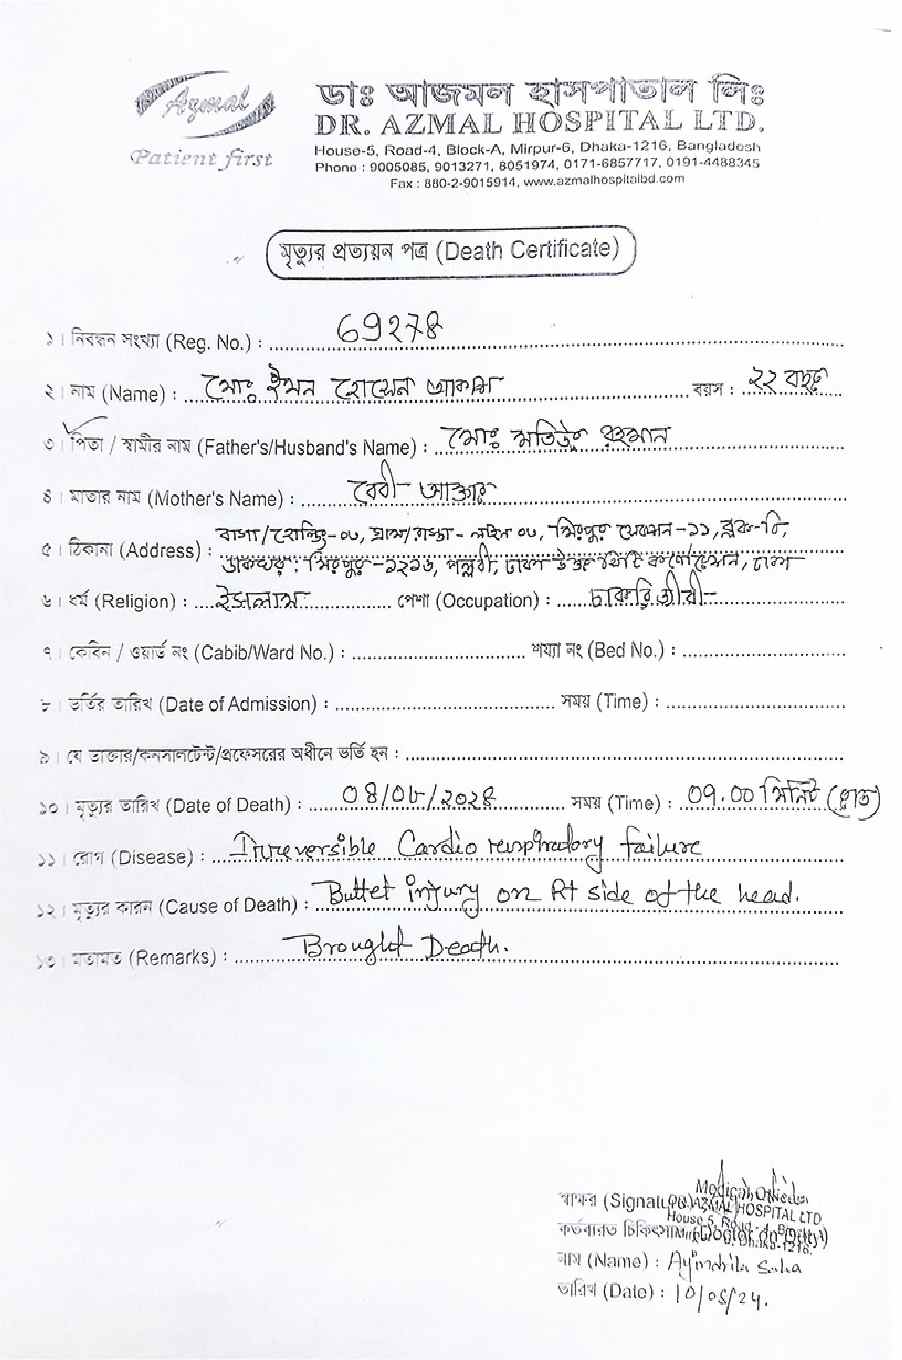 Azmal
Patient first
ডাঃ আজমল হাসপাতাল লিঃ
DR. AZMAL HOSPITAL LTD.
House-5, Road-4, Block-A, Mirpur-6, Dhaka-1216, Bangladesh
Phone : 9005085, 9013271, 8051974, 0171-6857717, 0191-4488345
Fax : 880-2-9015914, www.azmalhospitalbd.com
মৃত্যুর প্রত্যয়ন পত্র (Death Certificate)
১। নিবন্ধন সংখ্যা (Reg. No.) : 69278
২। নাম (Name) : মোঃ ইমন হোসেন আকাশ বয়স : ২২ বছর
৩। পিতা / স্বামীর নাম (Father's/Husband's Name) : মোঃ মতিউর রহমান
৪। মাতার নাম (Mother's Name) : বেবী আক্তার
বাসা/হোল্ডিং-০৬, গ্রাম/রাস্তা- লাইন ০৬, মিরপুর সেকশন-১১, ব্লক-বি,
৫। ঠিকানা (Address) : ডাকঘর: মিরপুর-১২১৬, পল্লবী, ঢাকা উত্তর সিটি কর্পোরেশন, ঢাকা
৬। ধর্ম (Religion) : ইসলাম পেশা (Occupation) : চাকরিজীবী
৭। কেবিন / ওয়ার্ড নং (Cabib/Ward No.) : শয্যা নং (Bed No.) :
৮। ভর্তির তারিখ (Date of Admission) : সময় (Time) :
৯। যে ডাক্তার/কনসালটেন্ট/প্রফেসরের অধীনে ভর্তি হন :
১০। মৃত্যুর তারিখ (Date of Death) : 04/08/2024 সময় (Time) : 09.00 মিনিট (রাত)
১১। রোগ (Disease) : Irreversible Cardio respiratory failure
১২। মৃত্যুর কারন (Cause of Death) : Bullet injury on Rt side of the head.
১৩। মতামত (Remarks) : Brought Death.
স্বাক্ষর (Signature) Medical Officer
AZMAL HOSPITAL LTD
House-5, Road-
কর্তব্যরত চিকিৎসা
নাম (Name) : Ayindrila Saha
তারিখ (Date) : 10/08/24.